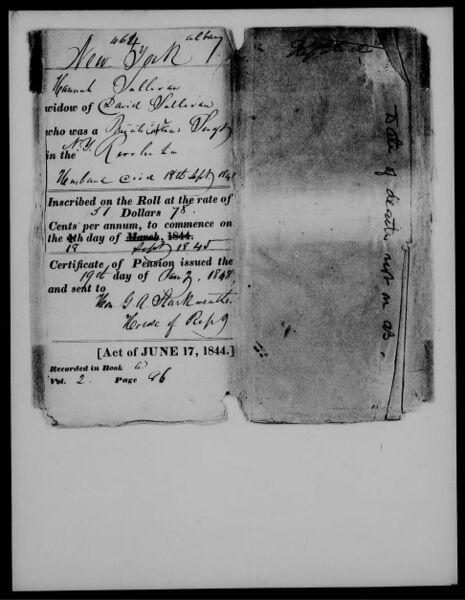 4664 albany
New York
Hannah Sullivan
widow of David Sullivan
who was a Private & Sergt
in the N.Y. Revolu
Husband died 18th Sept 1845
Inscribed on the Roll at the rate of
51 Dollars 78
Cents per annum, to commence on
the 4th day of March, 1844.
18 Sept 1845
Certificate of Pension issued the
19th day of Jany, 1848
and sent to
Hon. G. A. Starkweather
House of Rep
[Act of JUNE 17, 1844.]
Recorded in Book A
Vol. 2 Page 96
Date of death not on